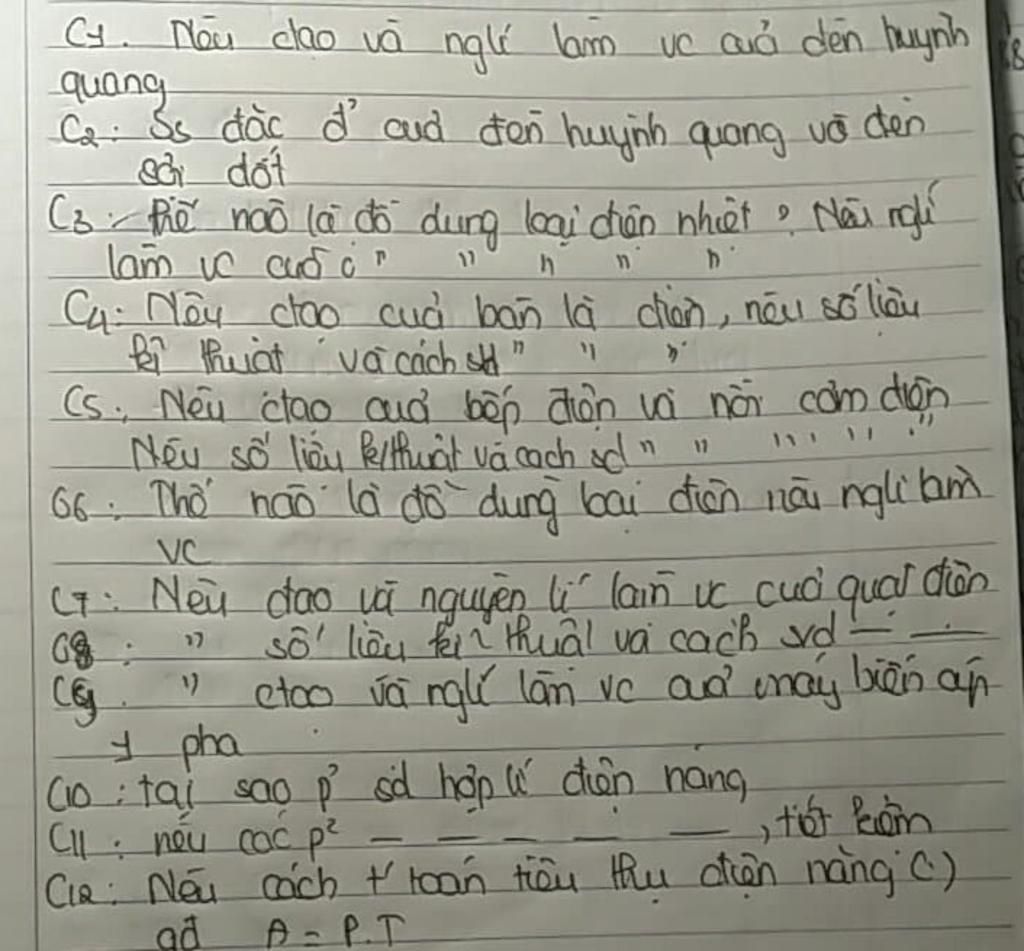 C1. Nêu ctạo và nglí làm vc của đèn huỳnh
quang
C2: Ss đặc đ' của đèn huỳnh quang và đèn
sợi đốt
C3: thế nào là đồ dùng loại điện nhiệt ? Nêu nglí
làm vc của " " " " "
C4: Nêu ctạo của bàn là điện, nêu số liệu
kĩ thuật và cách sd " " "
C5: Nêu ctạo của bếp điện và nồi cơm điện
Nêu số liệu kĩ thuật và cách sd " " " " "
C6: Thế nào là đồ dùng loại điện nêu nglí làm
vc
C7: Nêu ctạo và nguyên lí làm vc của quạt điện
C8: " số liệu kĩ thuật và cách sd — —
C9. " ctạo và nglí làm vc của máy biến áp
1 pha
C10: tại sao p' sd hợp lí điện năng
C11: nêu các p² — — — — —, tiết kiệm
C12: Nêu cách t' toán tiêu thụ điện năng
gđ A = P.T